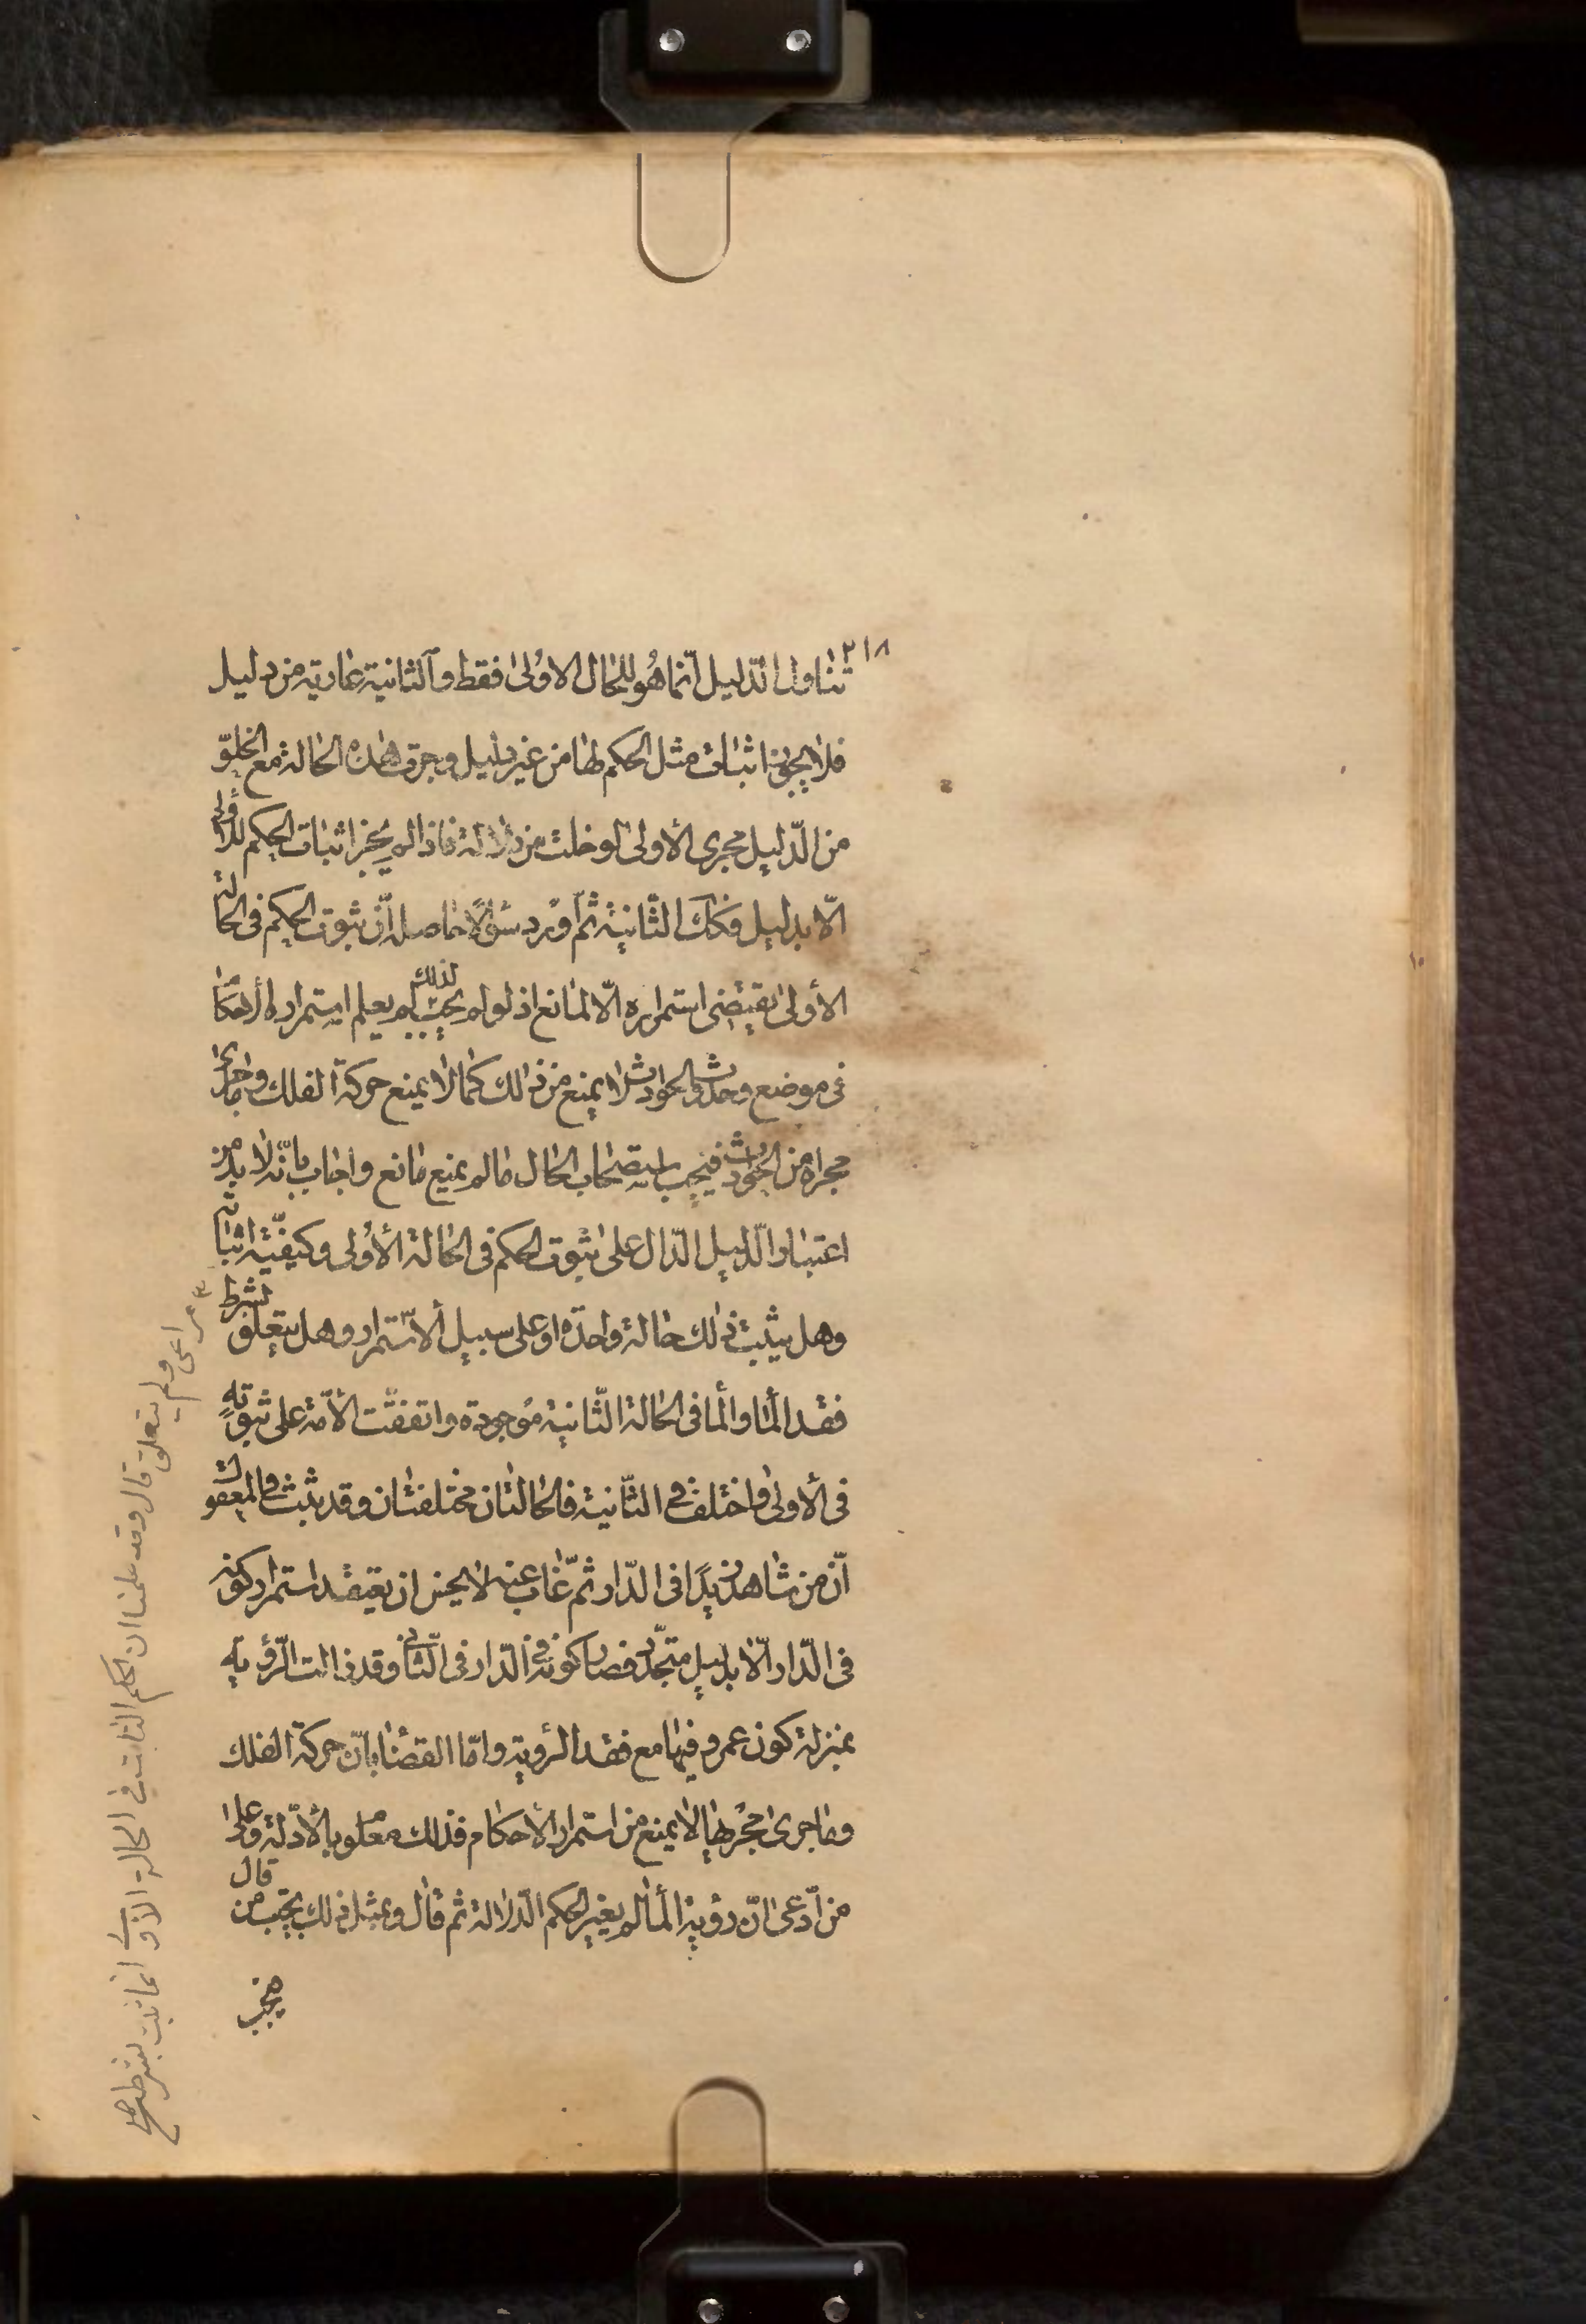 ٢١٨
تناول الدّليل انّما هُو للحال الاوُلىٰ فقط و الثانية عٰارية من دليل
فلا يجوز اثبات مثل الحكم لها من غير دليل و جرت هذه الحٰالة مع الخلوّ
من الدّليل مجرى الأولى لو خلت من دلالة فاذا لم يجز اثبات الحكم للاوُلىٰ
الّا بدليل فكك الثّانية ثم اوُرد سؤالًا حٰاصله انّ ثبوت الحكم فى الحالة
الأولىٰ يقتضى استمراره الّا لمانع اذ لو لم يجب لذلك لم يعلم استمرار الأحكٰام
فى موضع و حدوث الحوادث لا يمنع من ذالك كما لا يمنع حركة الفلك و ما جرىٰ
مجراه من الحوادث فيجب استصحٰاب الحٰال مٰا لم يمنع مٰانع و اجاب بانّه لا بدّ من
اعتبار الدّليل الدّال علىٰ ثبوت الحكم فى الحالة الأوُلى و كيفيّة اثباته
و هل يثبت ذلك حالة واحدة او على سبيل الاستمرار و هل يتعلّق بشرط
فقد الماء و الماء فى الحالة الثّانية موُجودة و اتفقت الأمّة على ثبوته
فى الأولىٰ و اختلفت فى الثّانية فالحٰالتٰان مختلفتٰان و قد ثبت فى العقول
انّ من شاهد زيدًا فى الدّار ثمّ غٰاب عنه لا يحسن ان يعتقد استمرار كونه
فى الدّار الّا بدليل متجدّد فصار كونه فى الدّار فى الثّانى و قد زالت الرّؤية
بمنزلة كون عمرو فيها مع فقد الرؤية و امّا القضٰاء بانّ حركة الفلك
و ما جرىٰ مجرٰها لا يمنع من استمرار الأحكام فذلك معلوم بالأدّلة و علىٰ
من ادّعى انّ رؤية الماء لم يغير الحكم الدّلالة ثم قال و بمثل ذلك يجيب من قال
فيجب
٣ مراعى و لم يتعلق قال و قد علمنا ان الحكم الثابت فى الحالة الاولى انما ثبت بشرط صح